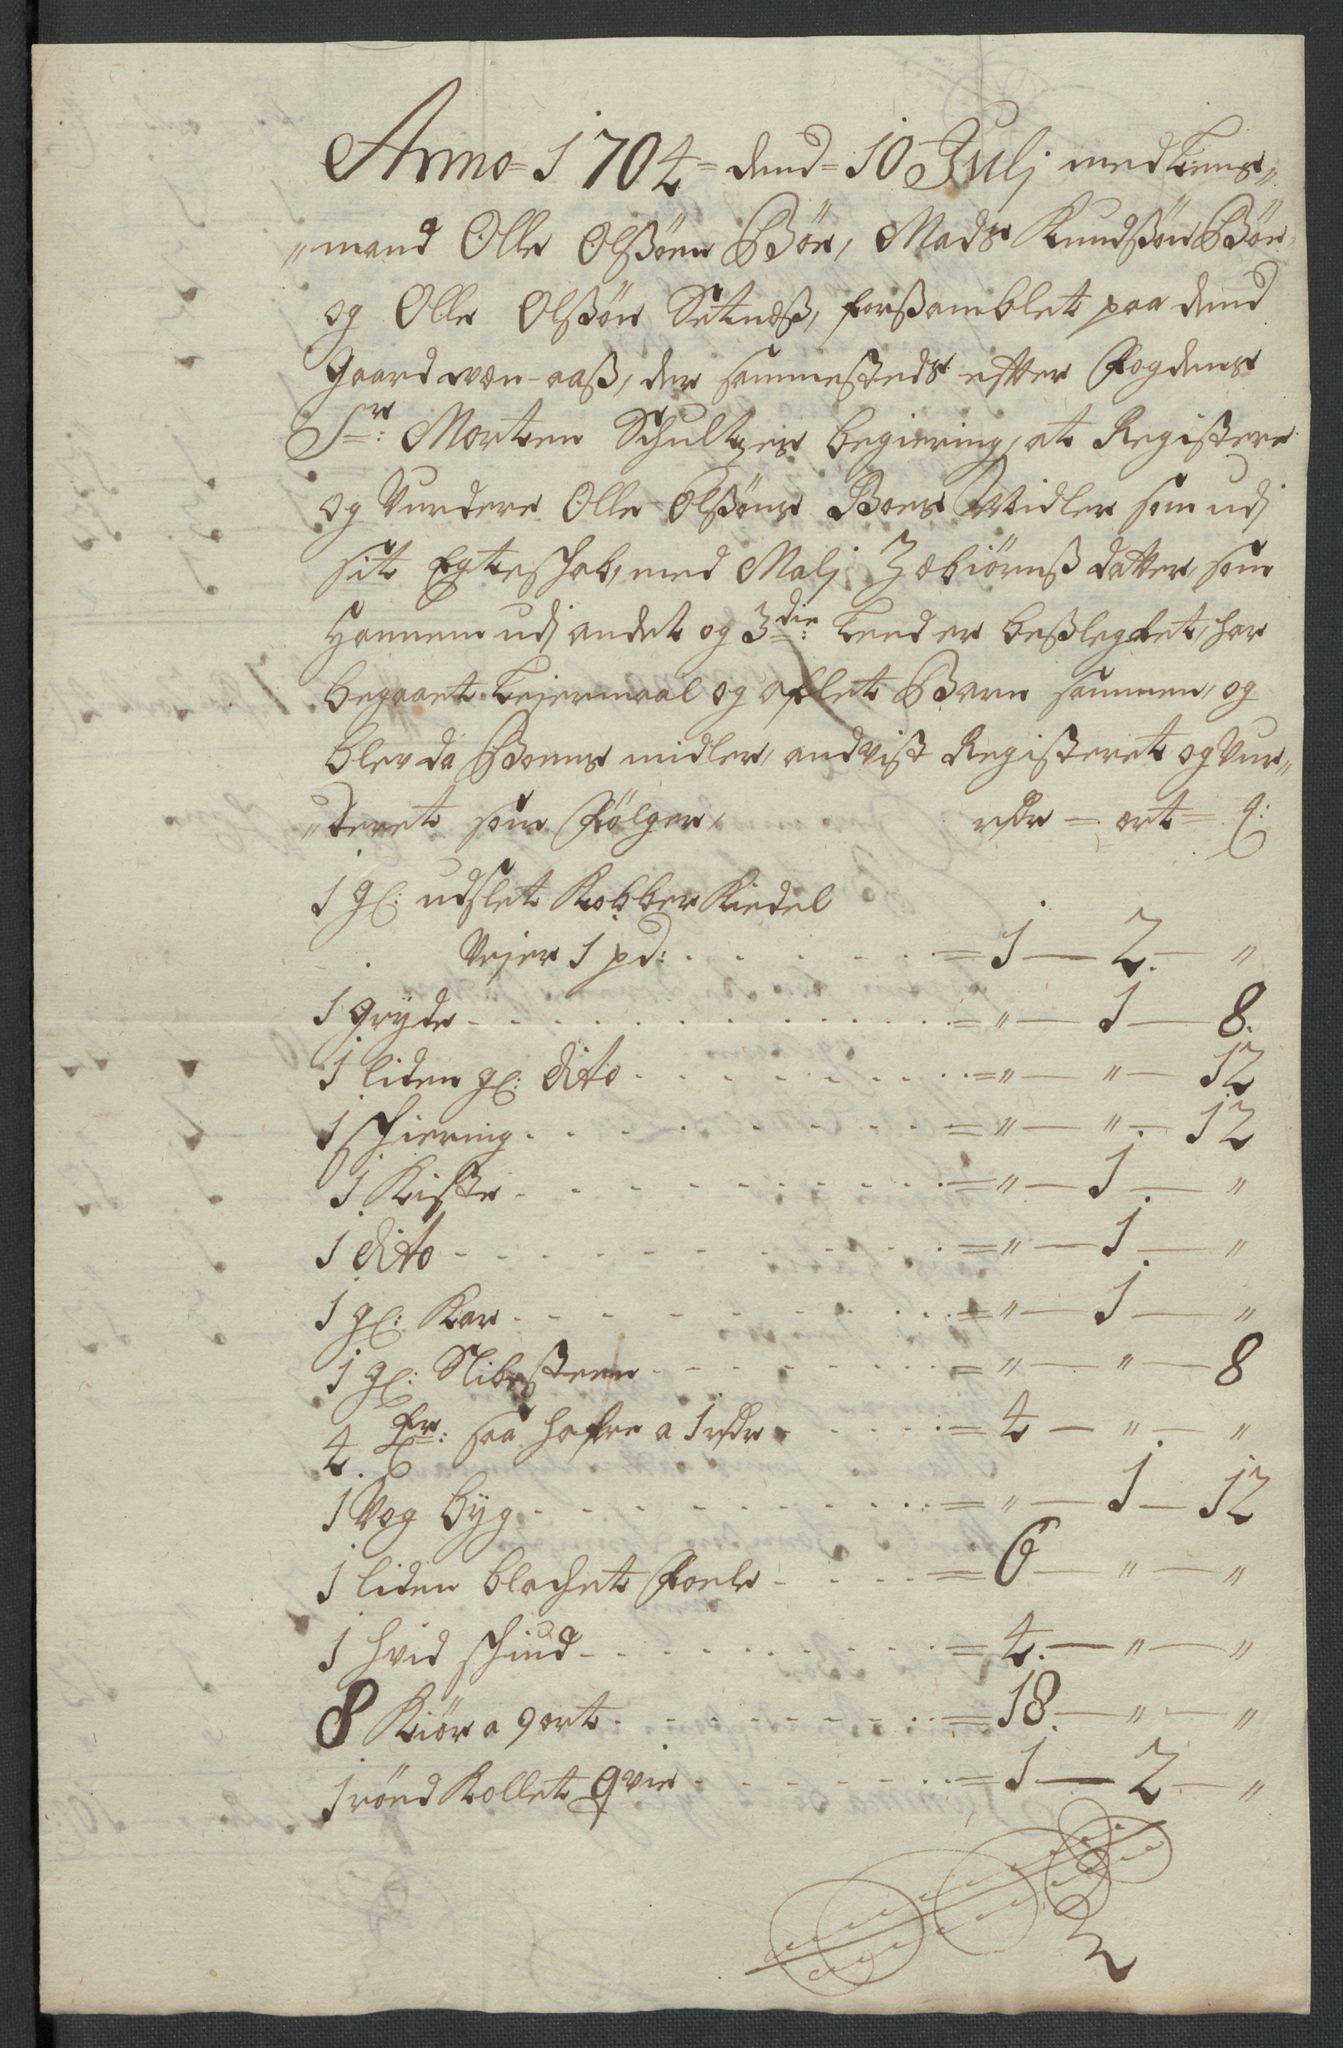 Anno 1704 dend 10 Julj med Lens-
mand Olle Olßøen Bøe, Mads Knudßøn Bøe,
og Olle Olßøn Setneß, forßamblet paa dend
gaard aaß, der sammesteds efter Fogdens
Sr: Morten Schultzes begiering, at Registere
og Vurdere Olle Olßøns Boes Midler som udj
sit Egteschab, med Malj Zebiørnß datter, som
Hannem udj andet og 3die Leed er beßlegtet, har
begaaet Leiermaal og aflet Barn sammen, og
blev da Boens midler, andvist Registeret og Vur-
deret som Følger, rdr ort ß:
1 gl: udslet Kobber Kiedel
Vejer 1 pd: . . . . . = 1 — 2. — "
1 gryde . . . . . = " — 1 — 8.
1 liden gl: dito . . . . . = " — " — 12
1 schiering . . . . . = " — " — 12
1 Kiste . . . . . = " — 1. — "
1 dito . . . . . = " — 1. — "
1 gl: Kar . . . . . = " — 1 — "
1 gl: Slibesteen . . . . . = " — " — 8
4 tr: saa hafre a 1 rdr . . . . . = 4 — " — "
1 Vog byg . . . . . = " — 1 — 12
1 liden blachet Foele . . . . . = 6 — " — "
1 hvid schiud . . . . . = 4. — " — "
8 Kiør a 9 ort . . . . . = 18. — " — "
1 røed Kollet qvie . . . . . = 1 — 2 — "